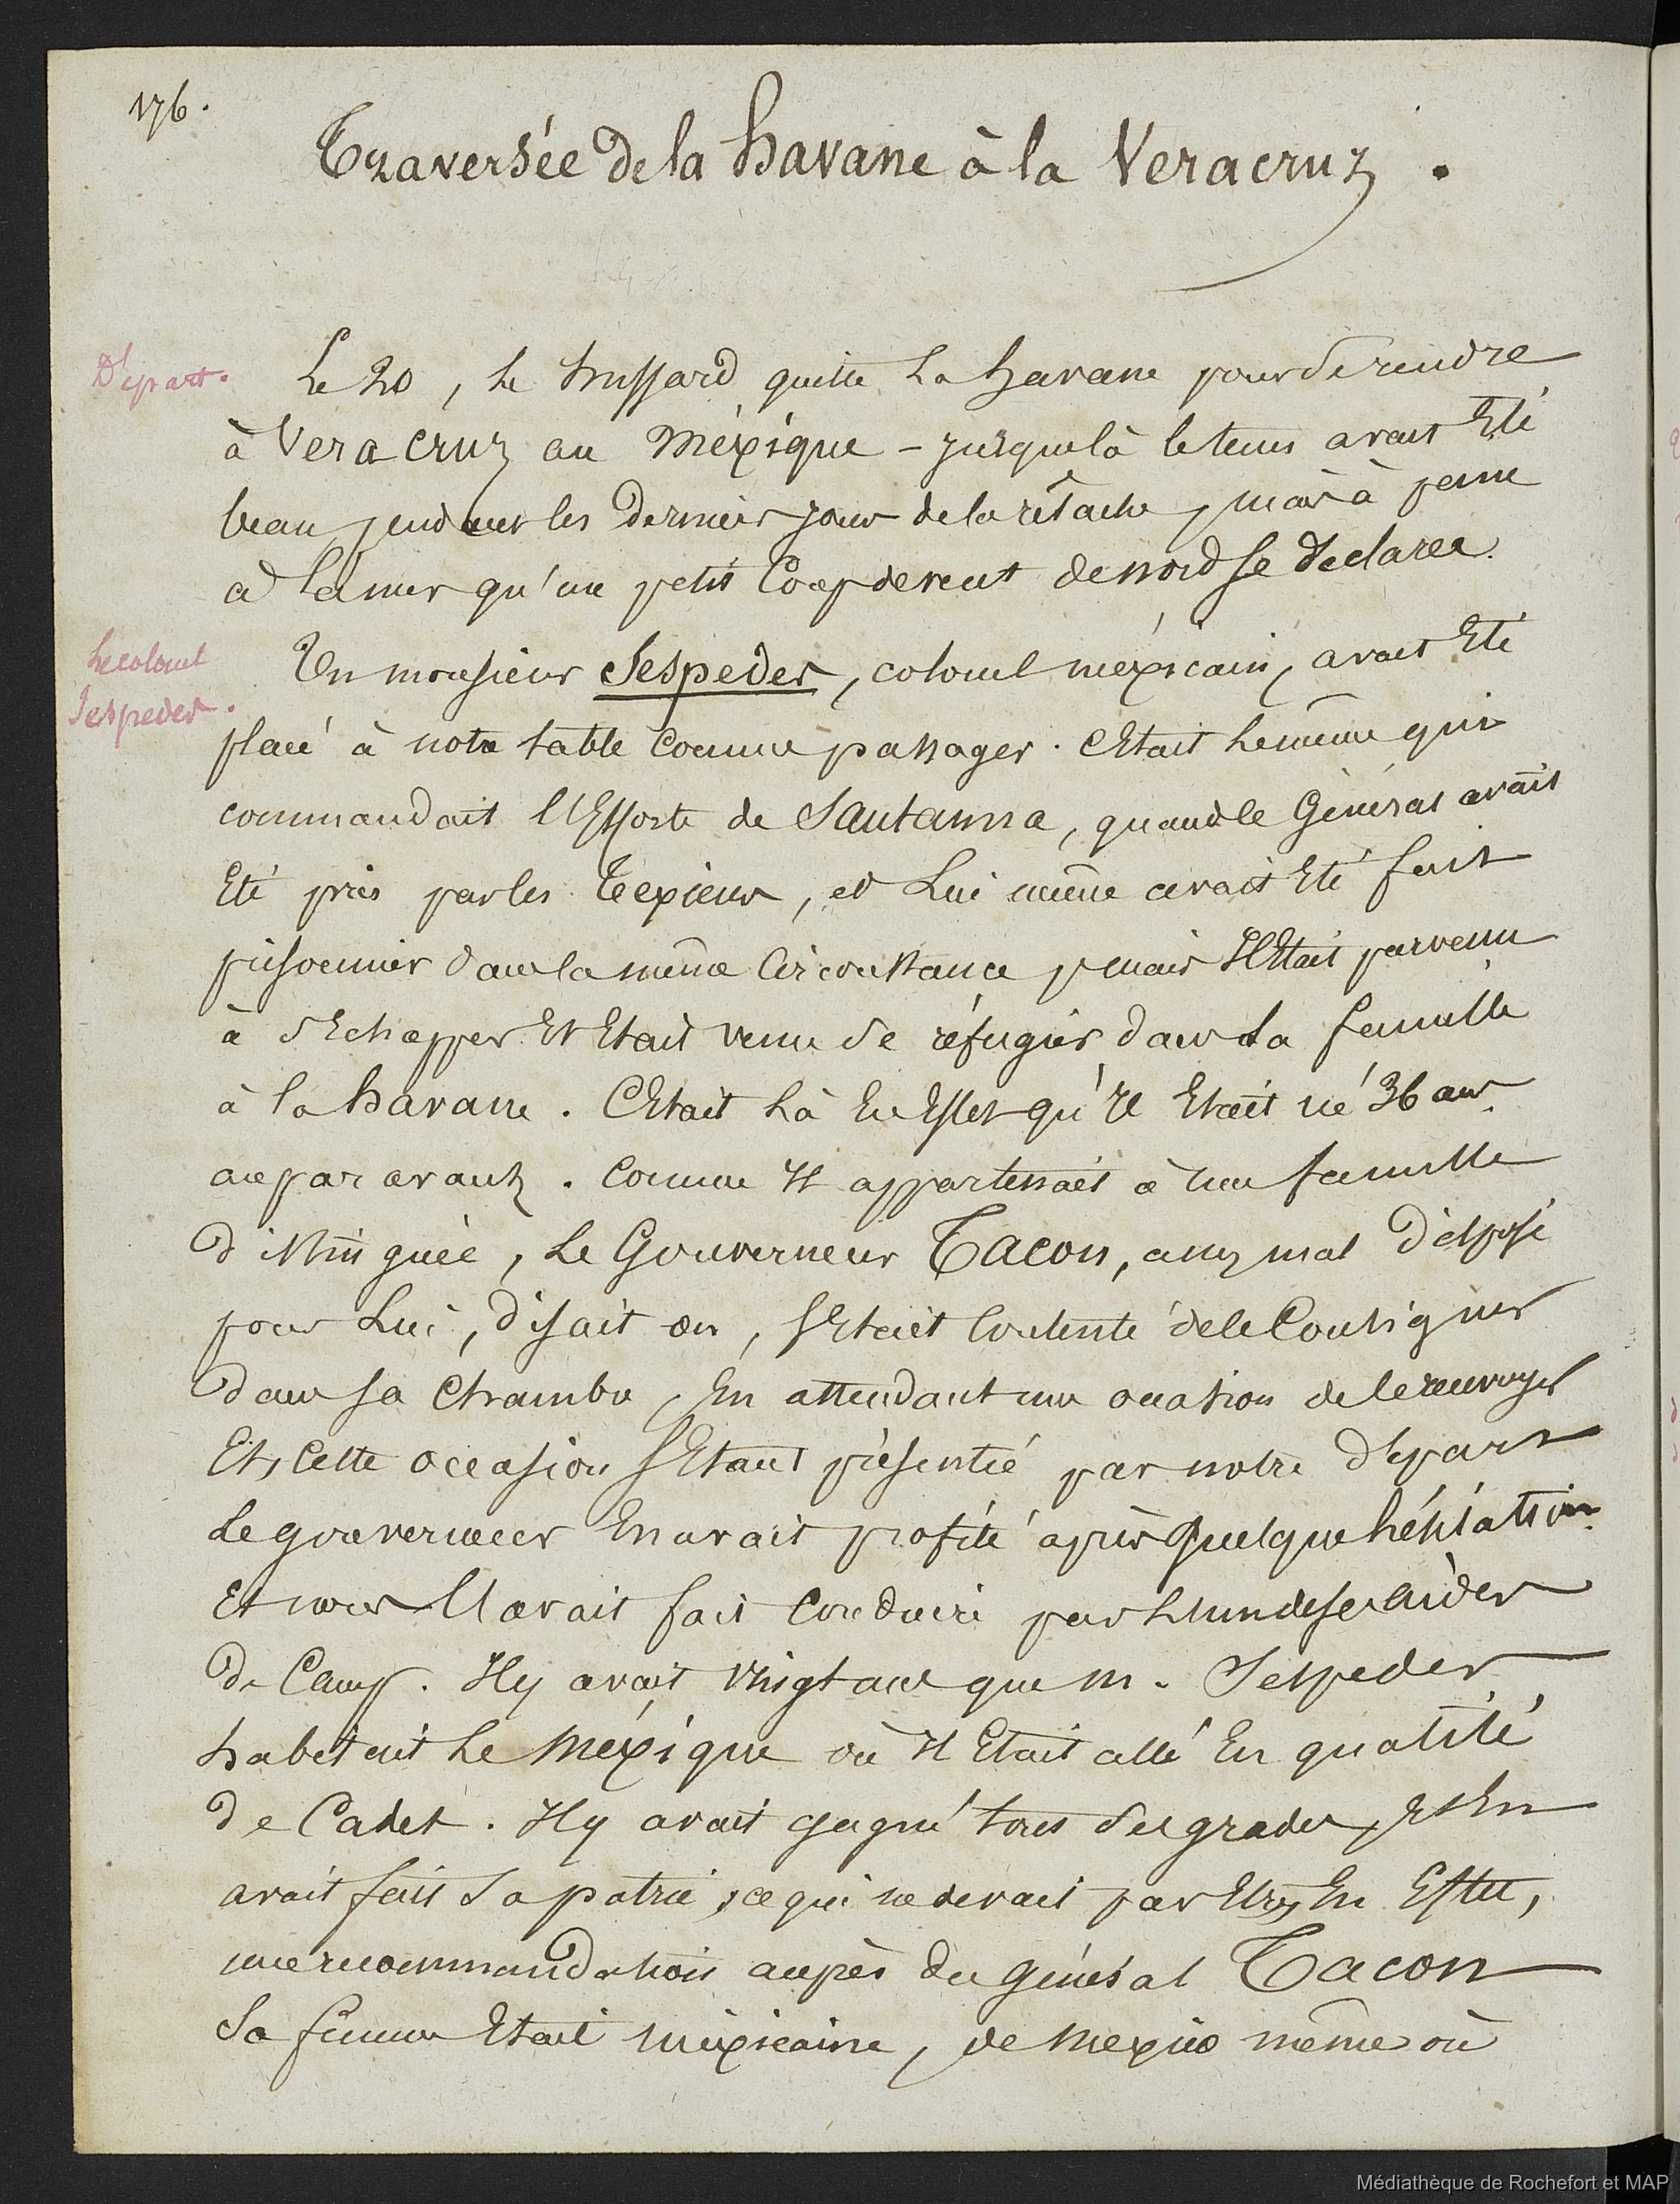 176.
Traversée de la havane à la Veracruz.
Départ.
Le 20, le hussard quitte la havane pour se rendre
à Vera cruz au Méxique - jusque là le tems avait Eté
beau pendant les derniers jours de la relache, mais à peine
à la mer qu'un petit Coup de vent de nord se déclara.
Le colonel
Sespedes.
Un monsieur Sespedes, colonel méxicain, avait Eté
placé à notre table Comme passager. C'Etait le même qui
commandait l'Escorte de Santanna, quand le Général avait
Eté pris par les Texiens, et Lui même avait Eté fait
prisonnier dans la même Circonstance, mais Il Etait parvenu
à s'Echapper Et Etait venu se réfugier dans sa famille
à la havane. C'Etait là En Effet qu'Il Etait né 36 ans
auparavant. Comme Il appartenait à une famille
distinguée, Le Gouverneur Tacon, assez mal disposé
pour Lui, disait on, s'Etait Contenté de le Consigner
dans sa Chambre, En attendant une occasion de le renvoyer
Et, Cette occasion s'Etant présentée par notre départ
Le gouverneur En avait profité après quelque hésitation
Et nous l'avait fait Conduire par l'un de ses aides
de Camp. Il y avait Vingt ans que m. Sespedes
habitait Le Méxique où Il Etait allé En qualité
de Cadet. Il y avait gagné tous ses grades, Et En
avait fait sa patrie, ce qui ne devait pas Etre, En Effet,
une recommandation auprès du général Tacon
Sa femme Etait méxicaine, de mexico même où
Médiathèque de Rochefort et MAP